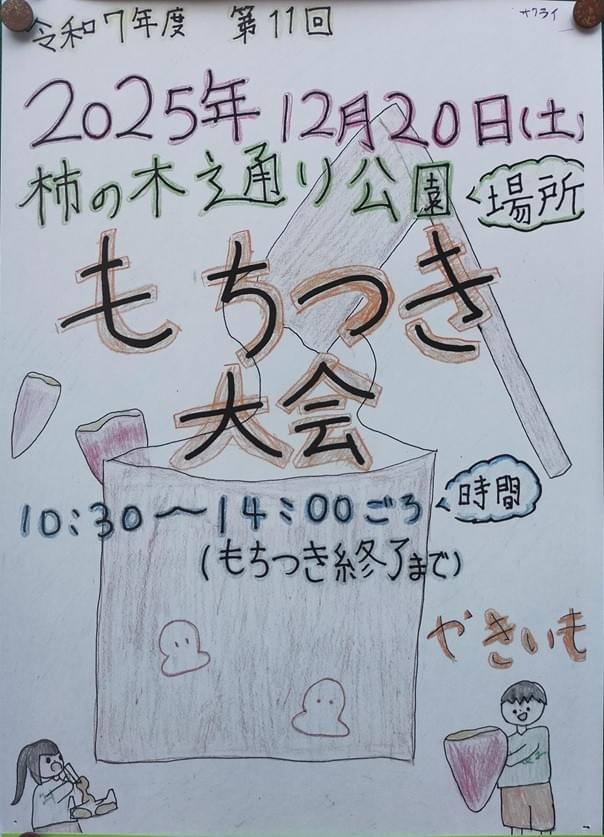 令和7年度 第11回
サクライ
2025年 12月20日(土)
柿の木通り公園
場所
もちつき
大会
10:30〜14:00ごろ
時間
(もちつき終了まで)
やきいも